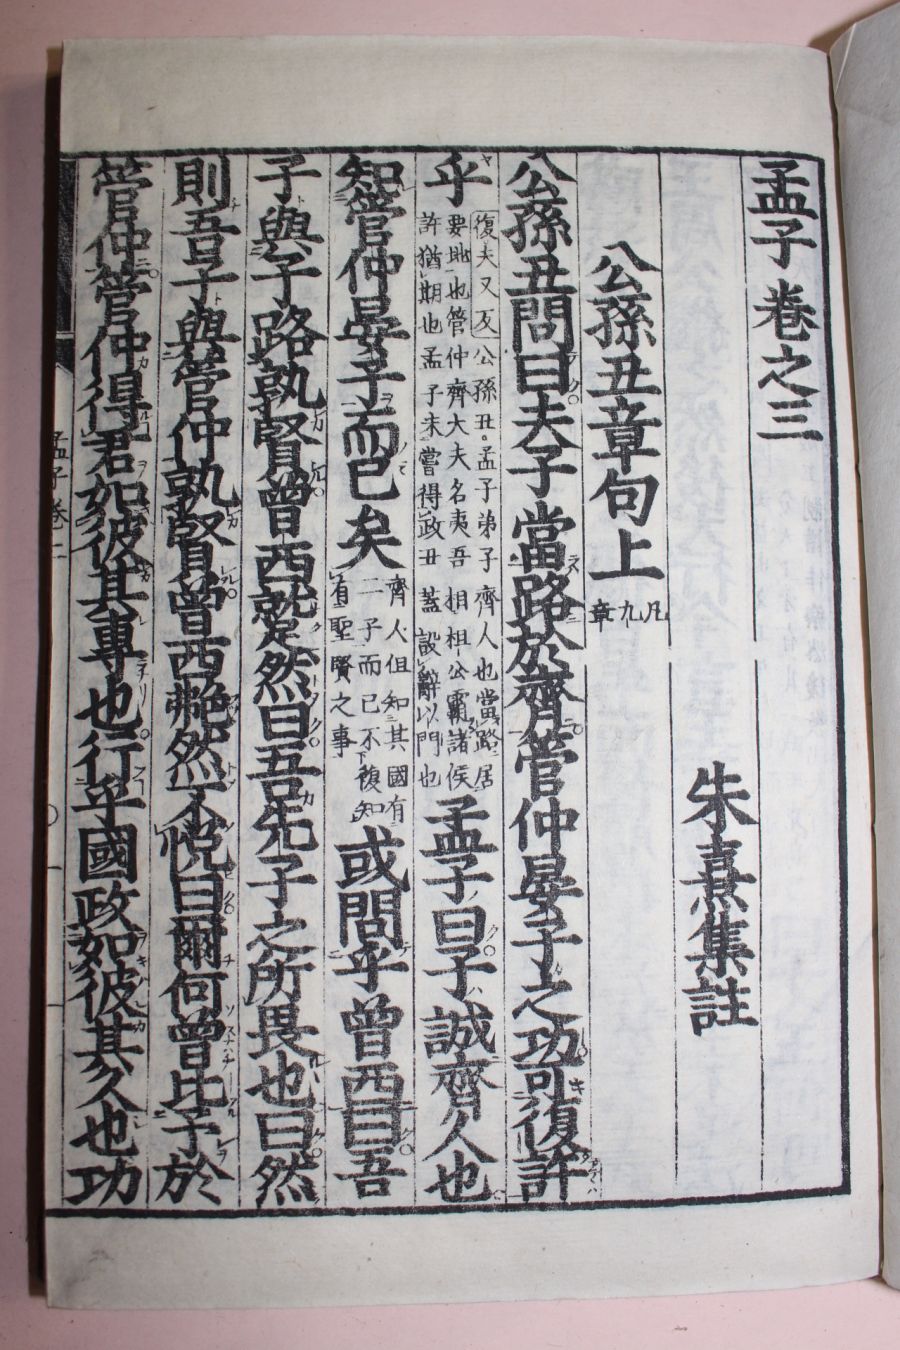 孟子卷之三
朱熹集註
公孫丑章句上 凡九章
公孫丑問曰夫子當路於齊管仲晏子之功可復許
乎 復夫又反公孫丑孟子弟子齊人也當路居
要地也管仲齊大夫名夷吾相桓公霸諸侯
許猶期也孟子未嘗得政丑蓋設辭以問也
孟子曰子誠齊人也
知管仲晏子而已矣 齊人但知其國有
二子而已不復知
有聖賢之事
或問乎曾西曰吾
子與子路孰賢曾西蹵然曰吾先子之所畏也曰然
則吾子與管仲孰賢曾西艴然不悅曰爾何曾比予於
管仲管仲得君如彼其專也行乎國政如彼其久也功
孟子卷